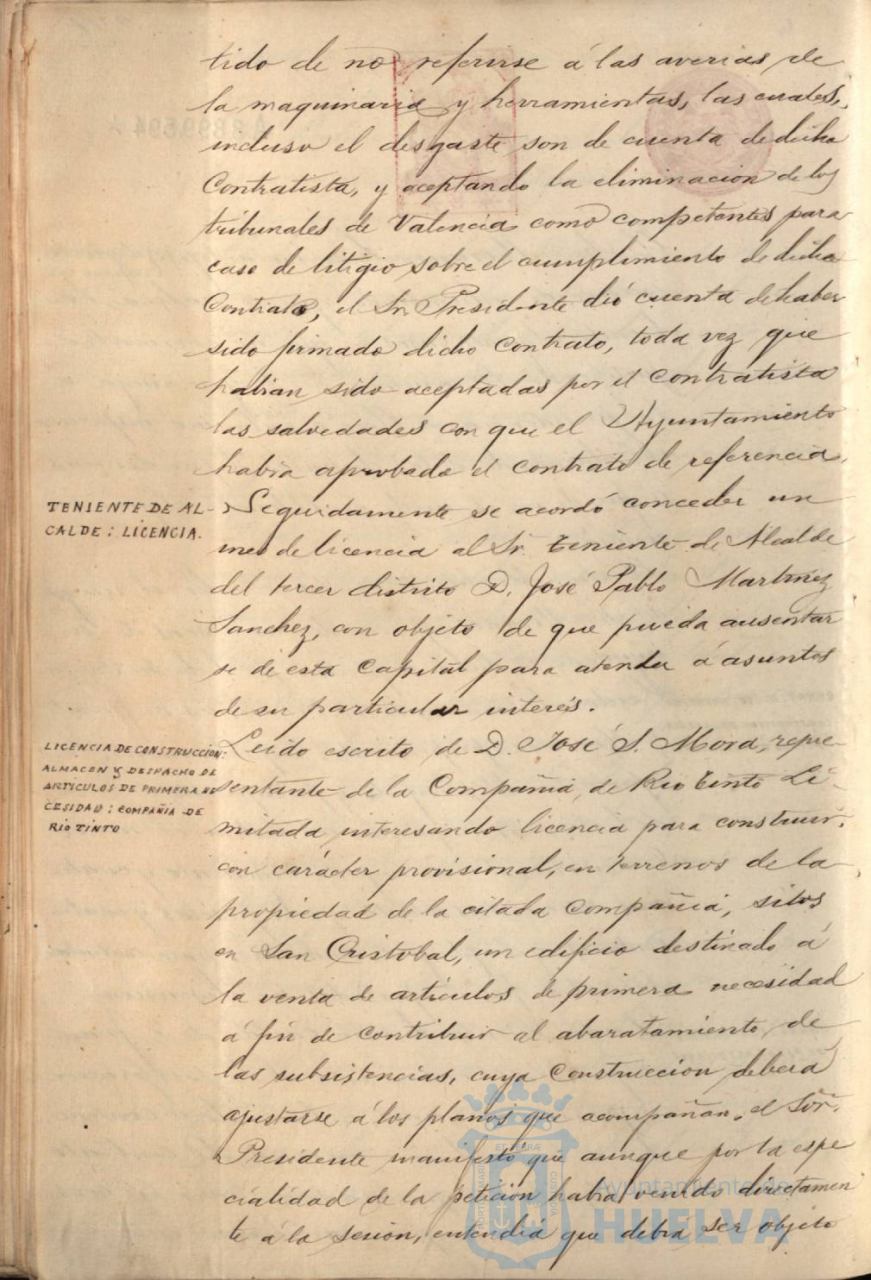 tido de no referirse á las averias de
la maquinaria y herramientas, las cuales,
incluso el desgaste son de cuenta de dicho
Contratista, y aceptando la eliminacion de los
tribunales de Valencia como competentes para
caso de litigio sobre el cumplimiento de dicho
Contrato, el Sr. Presidente dió cuenta de haber
sido firmado dicho contrato, toda vez que
habian sido aceptadas por el contratista
las salvedades con que el Ayuntamiento
habia aprobado el contrato de referencia.
TENIENTE DE AL-
CALDE: LICENCIA.
Seguidamente se acordó conceder un
mes de licencia al Sr. Teniente de Alcalde
del tercer distrito D. José Pablo Martinez
Sanchez, con objeto de que pueda ausentar
se de esta Capital para atender á asuntos
de su particular interés.
LICENCIA DE CONSTRUCCION:
ALMACEN Y DESPACHO DE
ARTICULOS DE PRIMERA NE
CESIDAD: COMPAÑÍA DE
RIO TINTO
Leido escrito de D. José S. Mora, repre-
sentante de la Compañia de Rio Tinto Li-
mitada, interesando licencia para construir,
con carácter provisional, en terrenos de la
propiedad de la citada Compañia, sitos
en San Cristobal, un edificio destinado á
la venta de artículos de primera necesidad
á fin de contribuir al abaratamiento de
las subsistencias, cuya construccion deberá
ajustarse á los planos que acompañan, el Sor.
Presidente manifestó que aunque por la espe
cialidad de la peticion habia venido directamen
te á la sesion, entendia que debia ser objeto
Ayuntamiento de
HUELVA